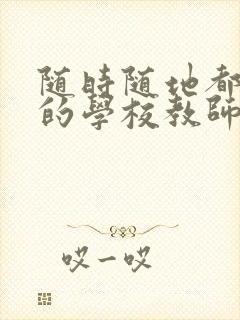 随時随地都
的學校教師
哎一哎